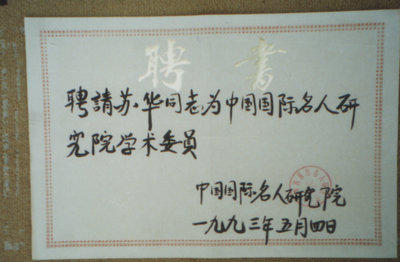 聘書
聘請苏华同志为中国国际名人研
究院学术委員
中国国际名人研究院
一九九三年五月四日